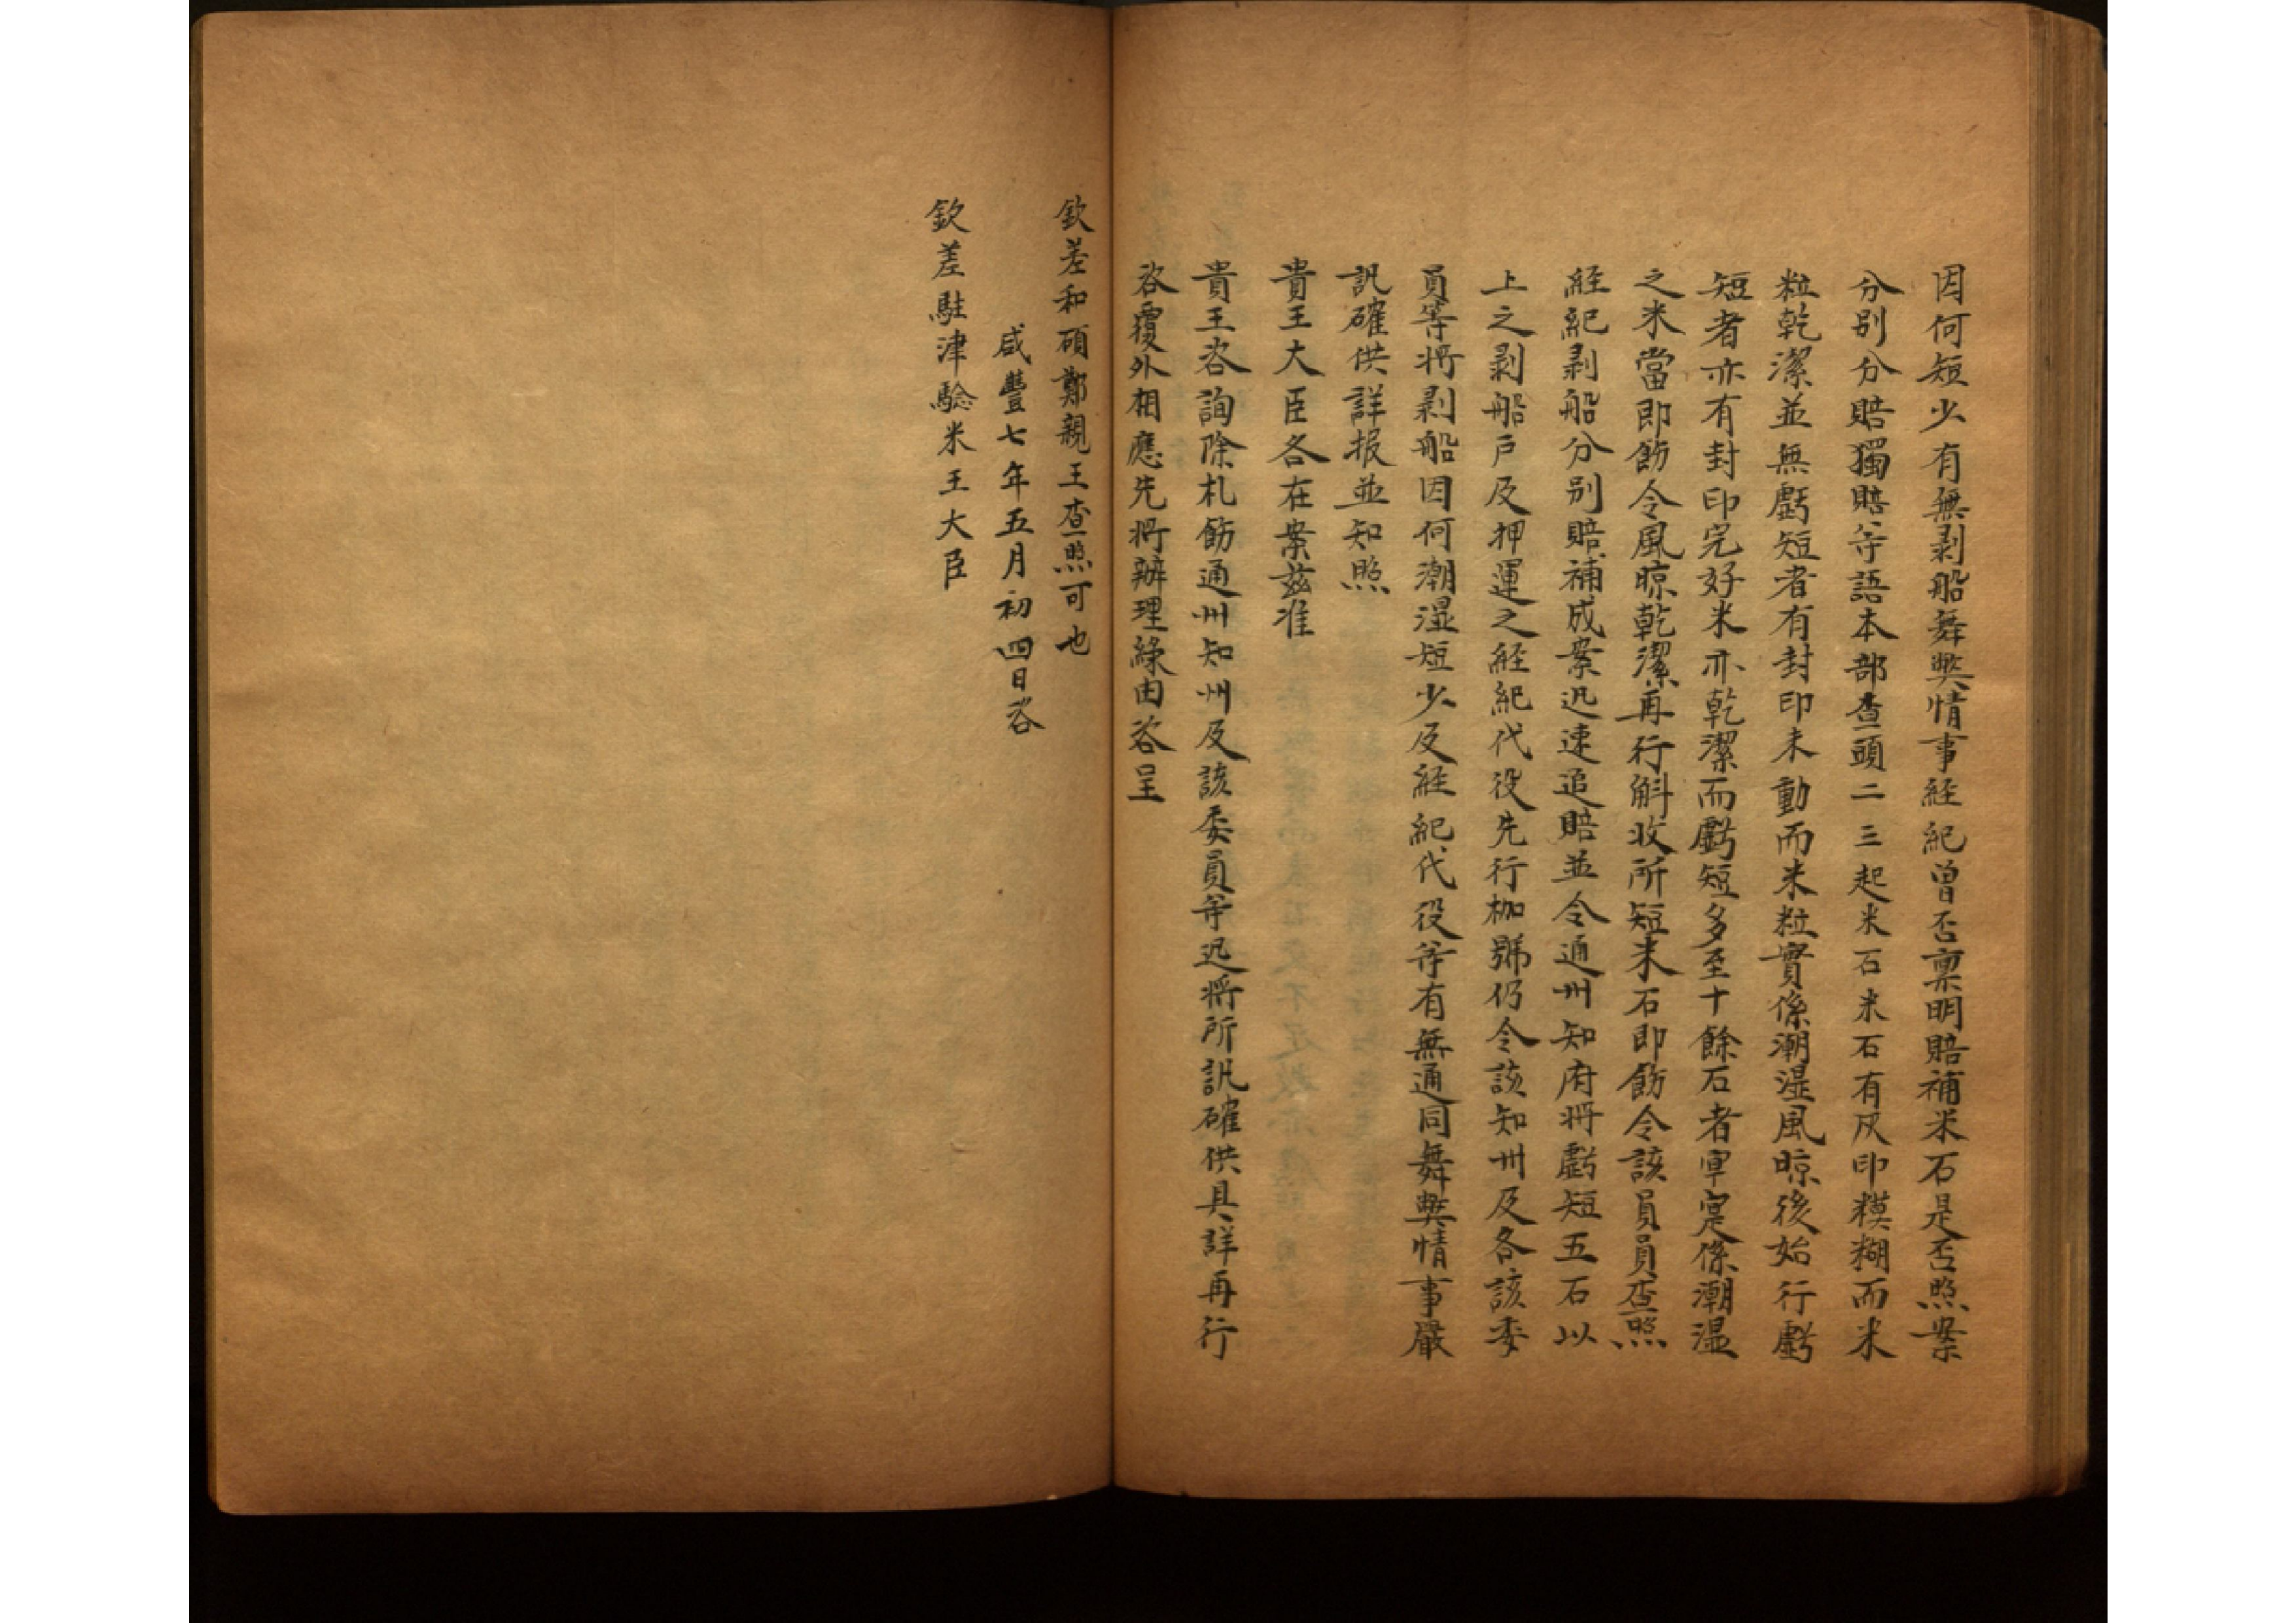 因何短少有無剥船舞獘情事経紀曾否禀明賠補米石是否照案
分别分賠獨賠等語本部查頭二三起米石米石有灰印糢糊而米
粒乾潔並無虧短者有封印未動而米粒實係潮湿風晾後始行虧
短者亦有封印完好米亦乾潔而虧短多至十餘石者
係潮湿
之米當即飭令風晾乾潔再行斛收所短米石即飭令該員員查照
経紀剥船分别賠補成案迅速追賠並令通州知府将虧短五石以
上之剥船户及押運之経紀代役先行枷號仍令該知州及各該委
員等将剥船因何潮湿短少及経紀代役等有無通同舞獘情事嚴
訊確供詳报並知照
貴王大臣各在案兹准
貴王咨詢除札飭通州知州及該委員等迅将所訊確供具詳再行
咨覆外相應先将辦理緣由咨呈
欽差和碩鄭親王查照可也
咸豐七年五月初四日咨
欽差駐津驗米王大臣